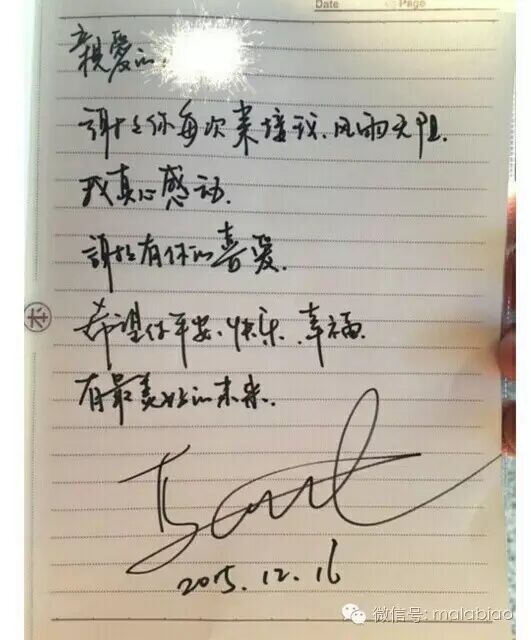 Date Page
親愛的
謝謝你每次来接我、风雨无阻.
我真心感动.
謝謝有你的喜爱.
希望你平安、快乐、幸福.
有最美好的未来.
2015.12.16
微信号: malabiao